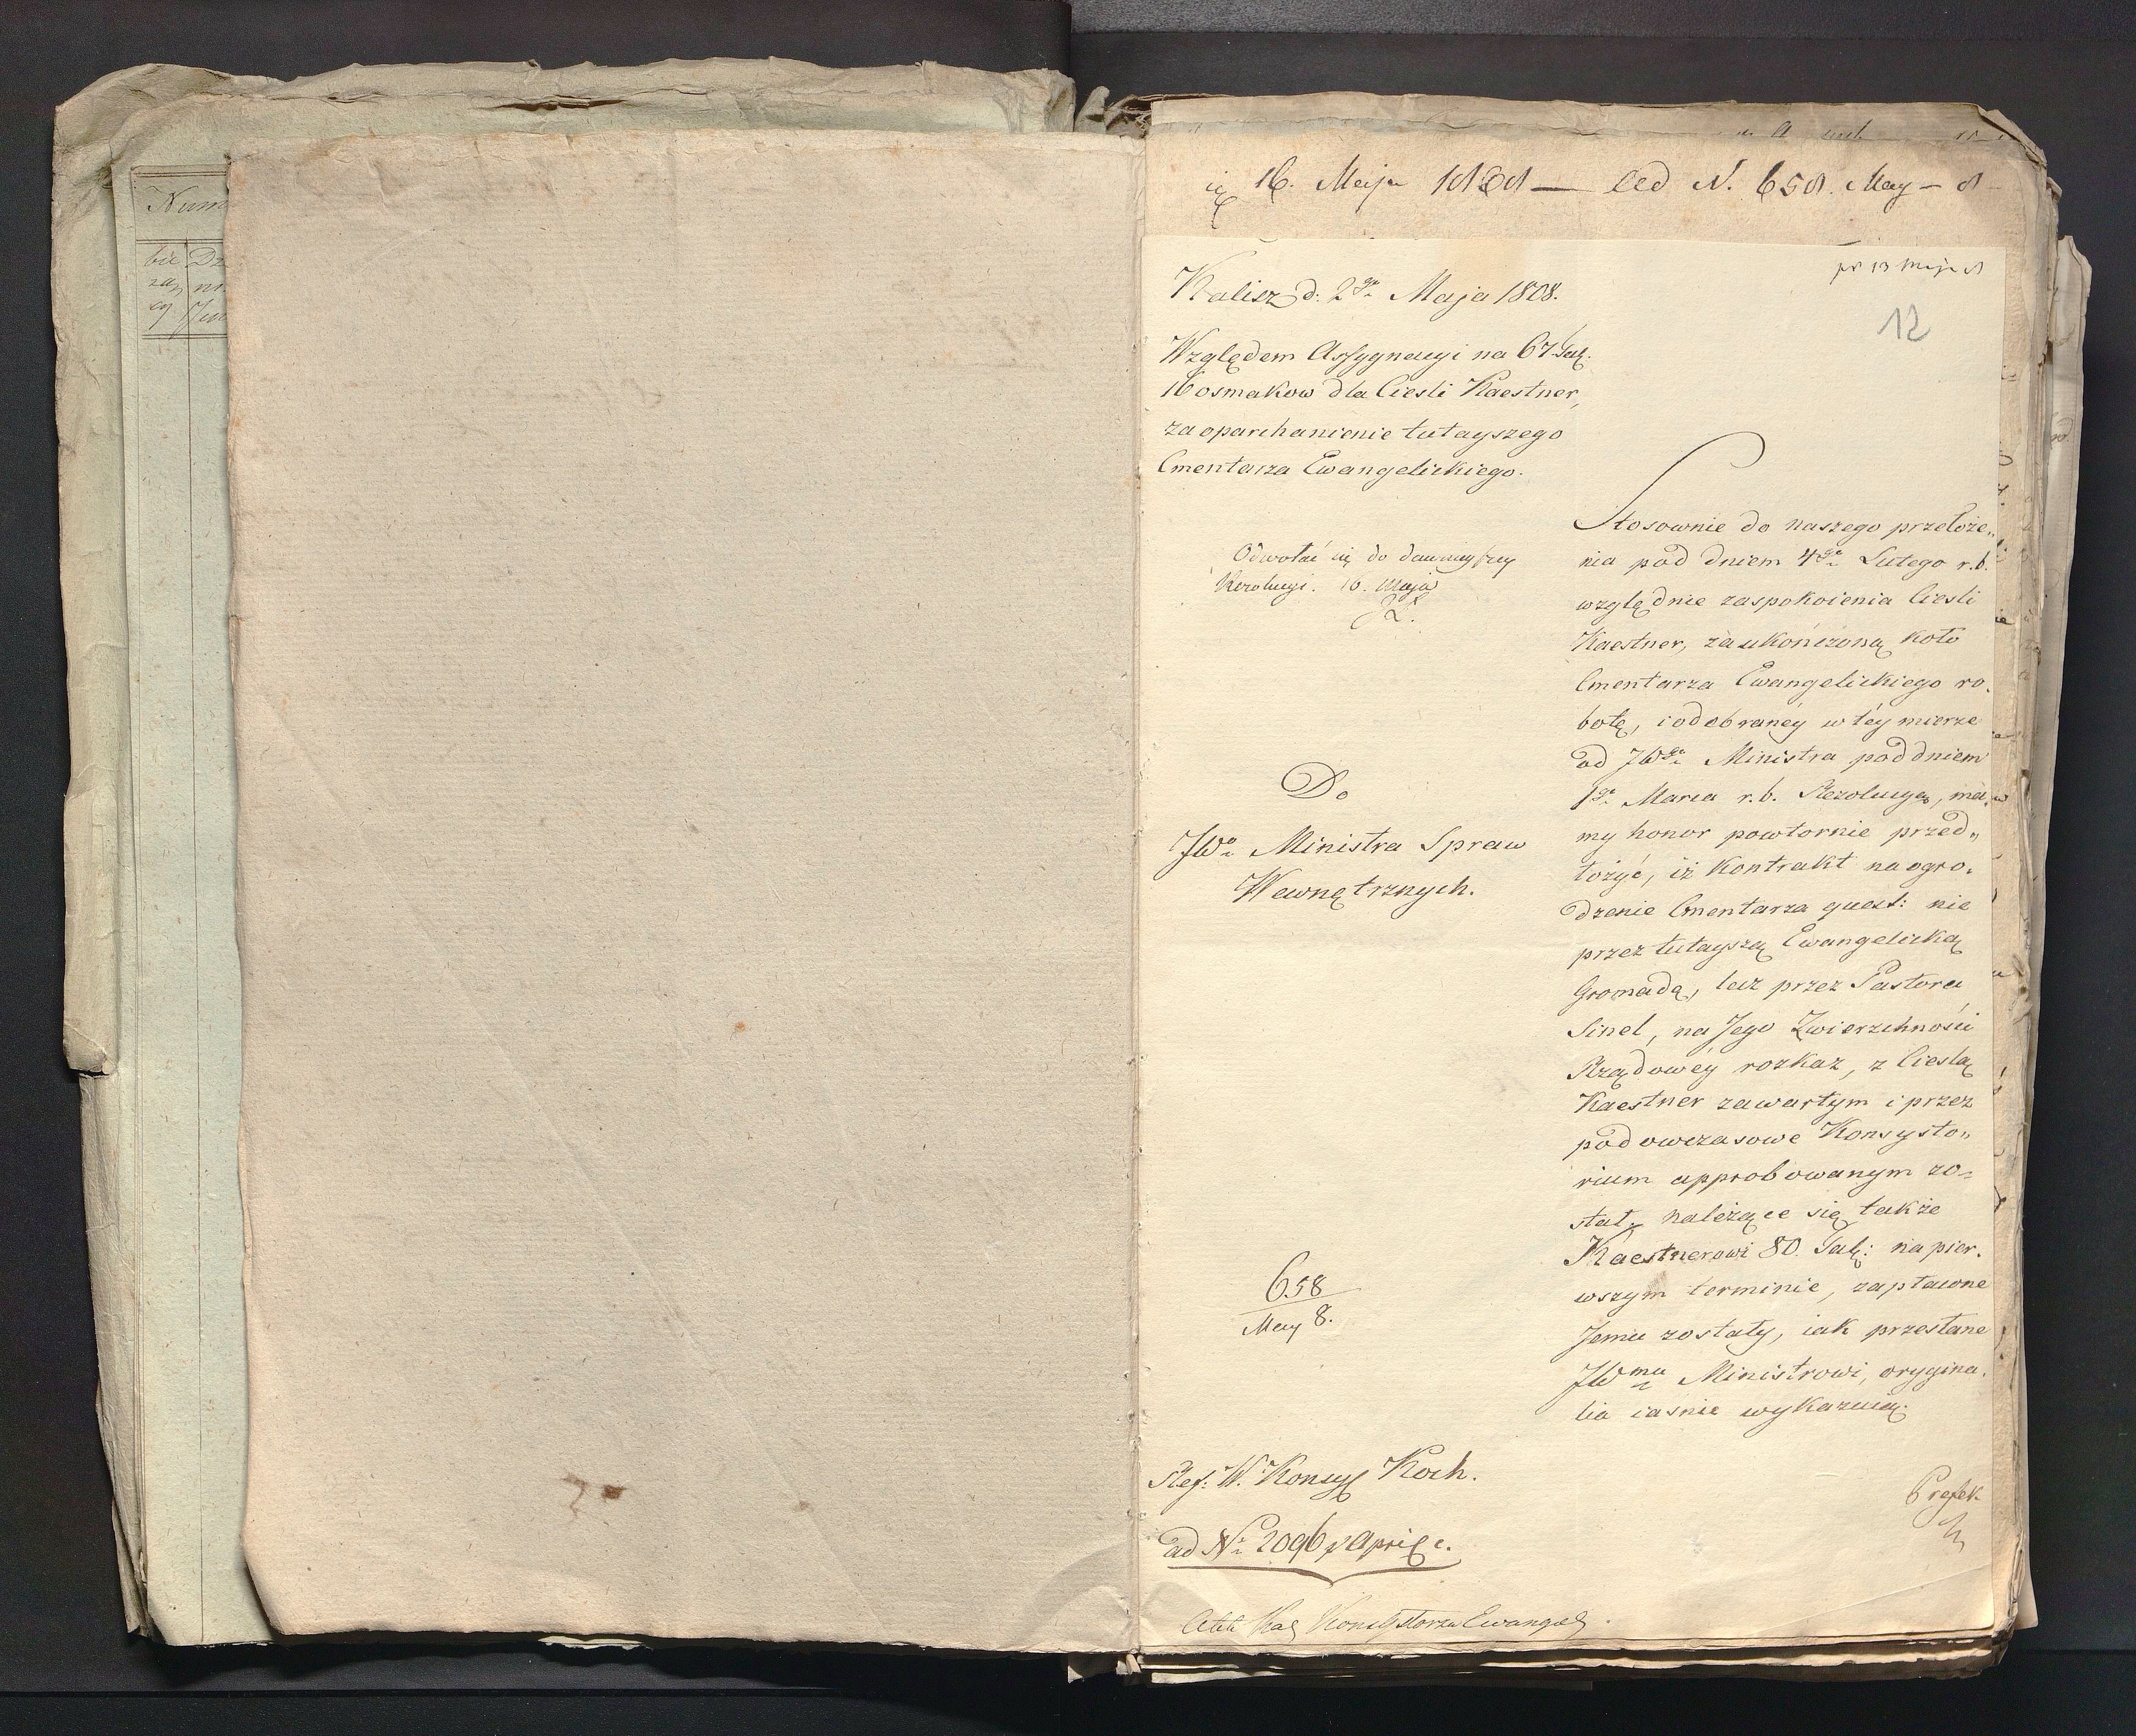 Num
bie Dz
zą
cy
16. Maja 1808 — ad N. 658. May — 8
pr 13 Maja 8
12
Kalisz d: 2go Maja 1808.
Względem Assygnacyi na 67 Tal:
16 osmakow dla Ciesli Kaestner,
za oparchanienie tutayszego
Cmentarza Ewangelickiego.
Odwołać się do dawnieyszey
Rezolucyi. 16. Maja
Do
JWo Ministra Spraw
Wewnętrznych.
658
May 8.
Ref: W. Konsyl Koch.
ad No 2096 p April c.
Stosownie do naszego przełoże„
nia pod dniem 4go Lutego r.b.
względnie zaspokoienia Ciesli
Kaestner, za ukończoną koło
Cmentarza Ewangelickiego ro.
botę, i odebraney w téy mierze
od JWgo Ministra pod dniem
1go Marca r.b. Rezolucyą, ma.
my honor powtornie przed„
łożyć, iż Kontrakt na ogro.
dzenie Cmentarza quest: nie
przez tutayszą Ewangelicką
Gromadą, lecz przez Pastora
Sinel, na Jego Zwierzchności
Rządowéy rozkaz, z Cieslą
Kaestner zawartym i przez
podowczasowe Konsysto„
rium approbowanym zo=
stał, należące się także
Kaestnerowi 80. Tal: na pier.
wszym terminie, zapłacone
Jemu zostały, iak przesłane
JWmu Ministrowi, orygina.
lia iasnie wykazuią.
Prefek
Konsystorza Ewangel